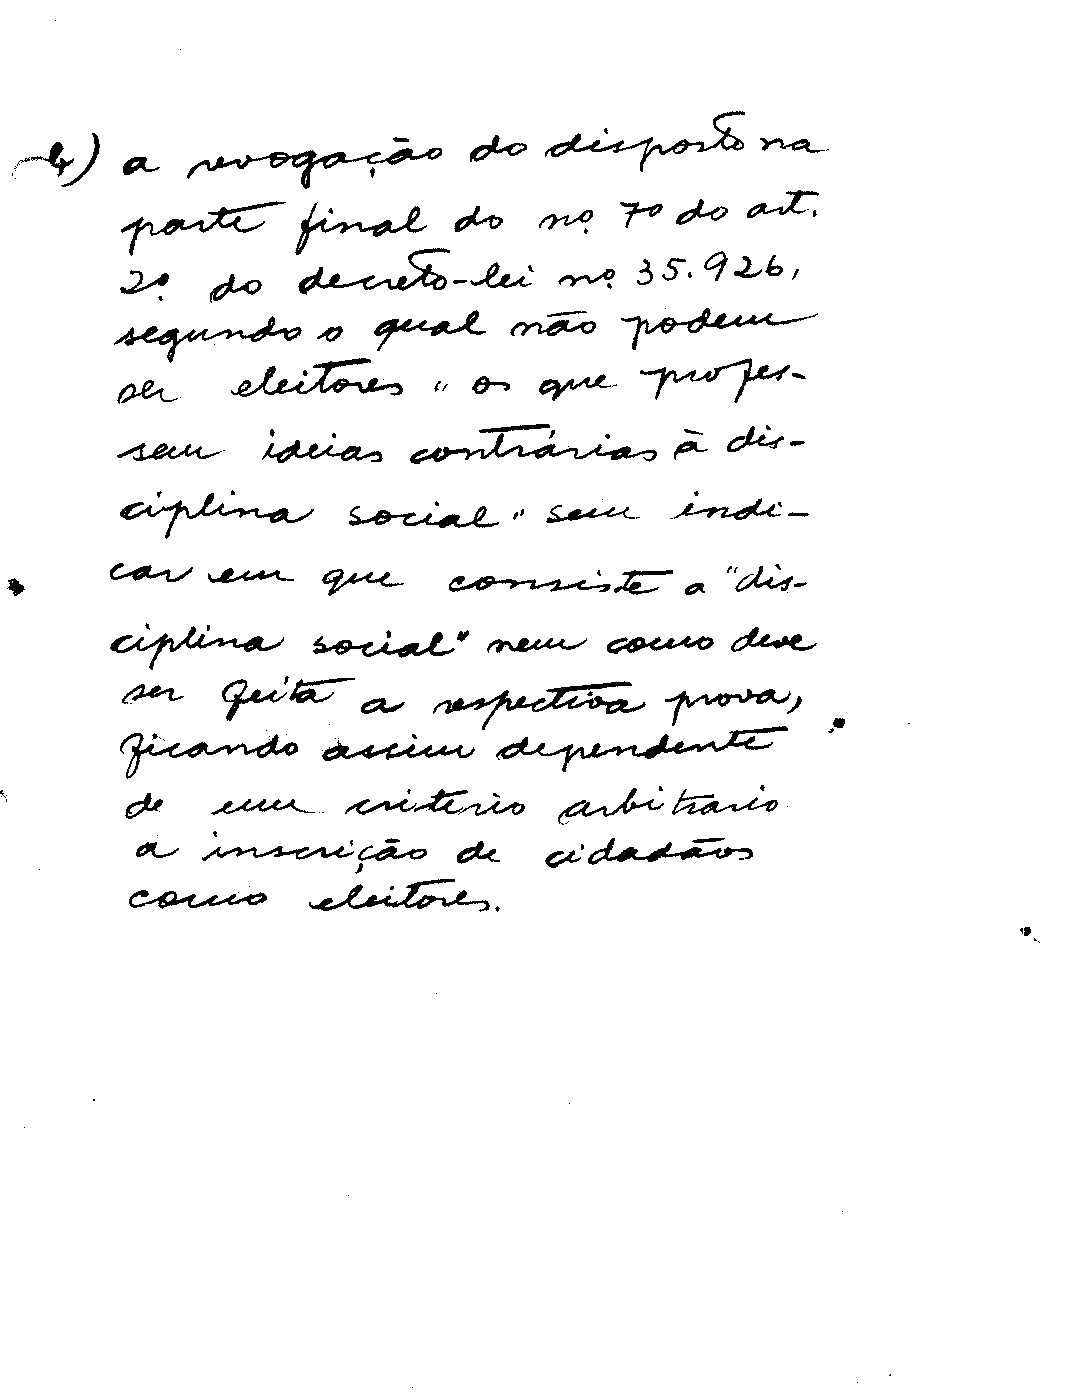 4) a revogação do disposto na
parte final do nº 7º do art.
2º do decreto-lei nº 35.926,
segundo o qual não podem
ser eleitores "os que profes-
sem ideias contrárias à dis-
ciplina social" sem indi-
car em que consiste a "dis-
ciplina social" nem como deve
ser feita a respectiva prova,
ficando assim dependente
de um critério arbitrario
a inscrição de cidadãos
como eleitores.